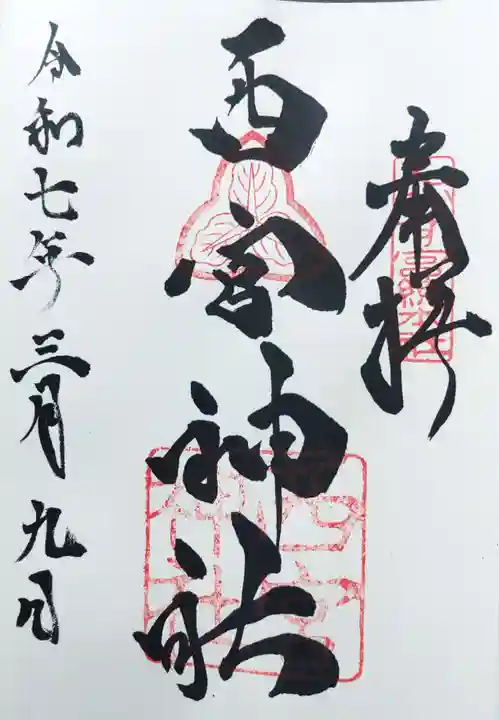 奉拝
西宮神社
令和七年三月九日